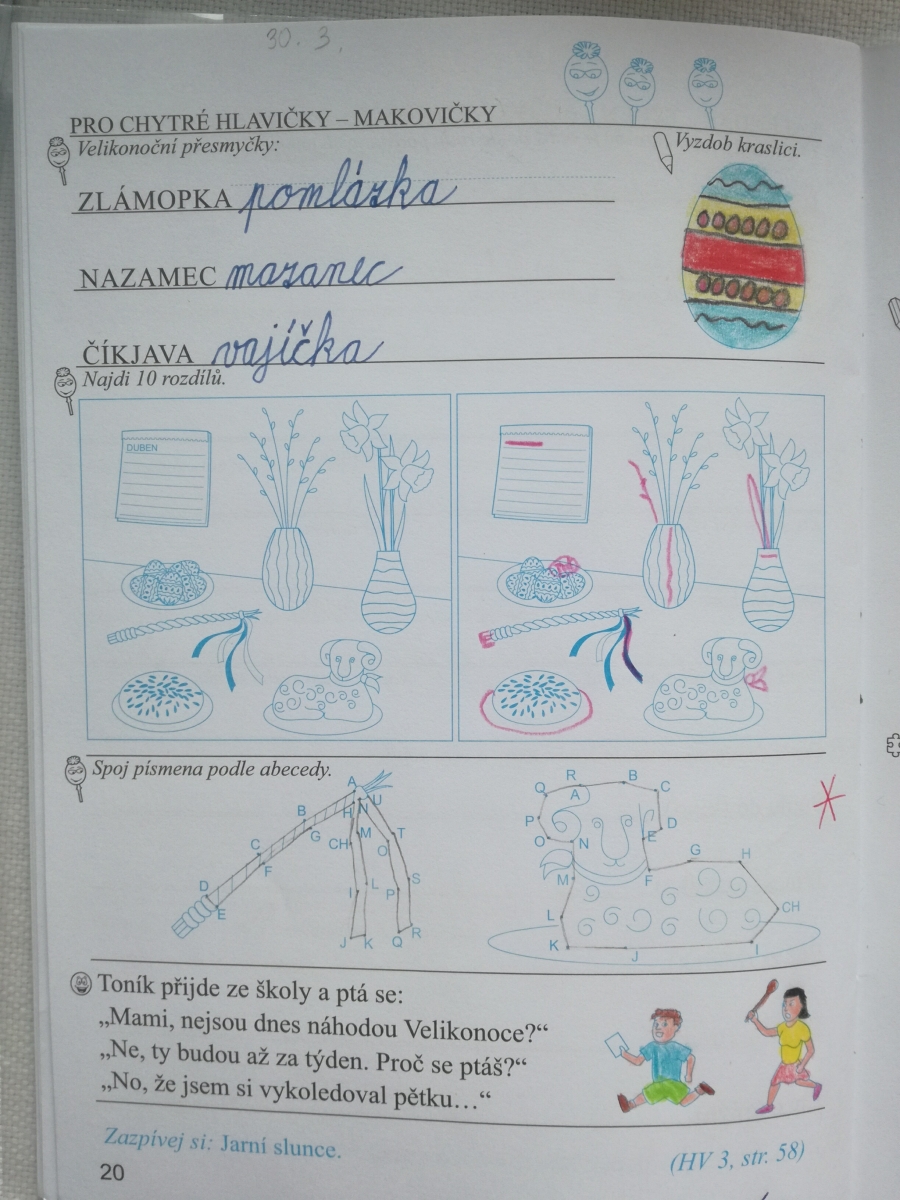 30. 3.
PRO CHYTRÉ HLAVIČKY – MAKOVIČKY
Velikonoční přesmyčky:
Vyzdob kraslici.
ZLÁMOPKA pomlázka
NAZAMEC mazanec
ČÍKJAVA vajíčka
Najdi 10 rozdílů.
DUBEN
Spoj písmena podle abecedy.
A
B
C
D
E
F
G
H
CH
I
J
K
L
M
N
O
P
Q
R
S
T
U
A
B
C
D
E
F
G
H
CH
I
J
K
L
M
N
O
P
Q
R
Toník přijde ze školy a ptá se:
„Mami, nejsou dnes náhodou Velikonoce?“
„Ne, ty budou až za týden. Proč se ptáš?“
„No, že jsem si vykoledoval pětku…“
Zazpívej si: Jarní slunce.
(HV 3, str. 58)
20